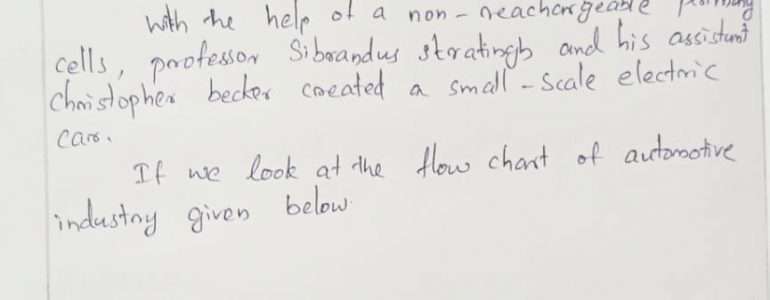 With the help of a non-reachargeable primary
cells, professor Sibrandus stratingh and his assistant
Christopher becker created a small-scale electric
car.
If we look at the flow chart of automotive
industry given below.